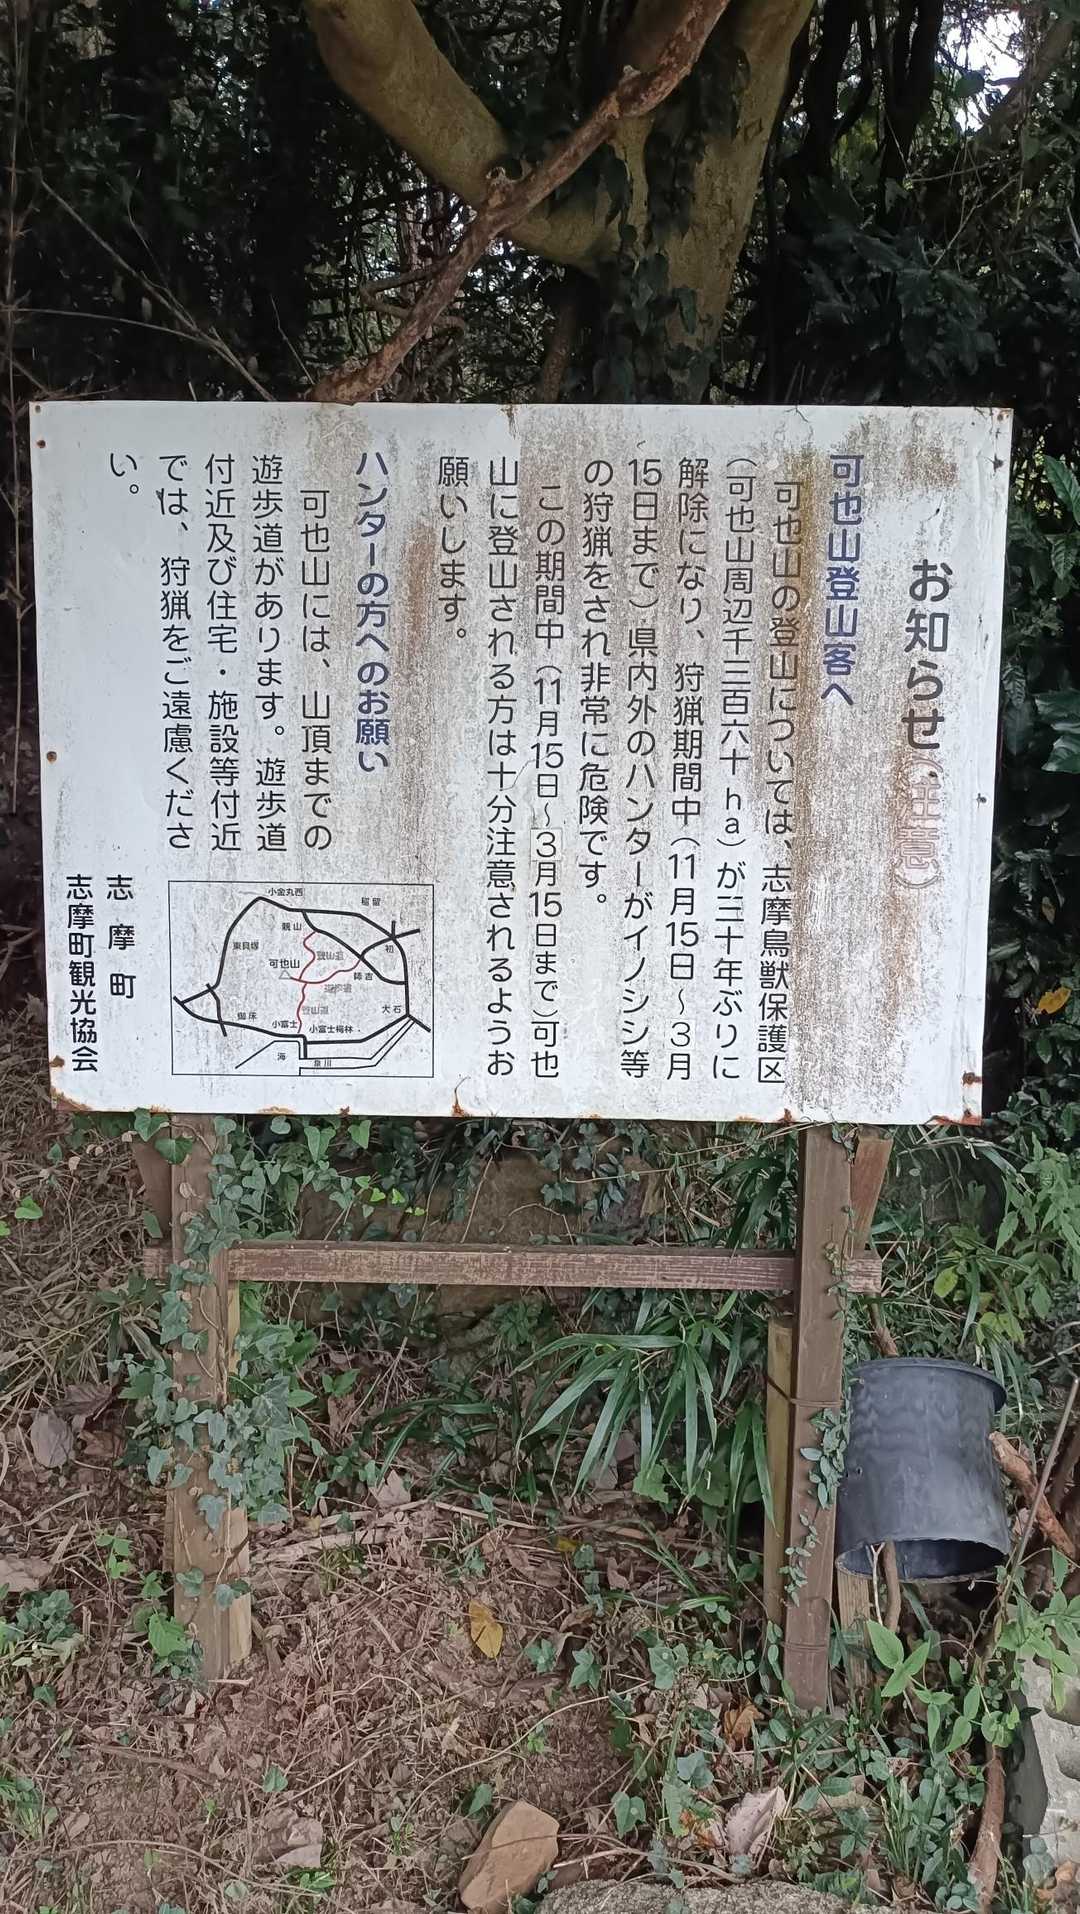 お知らせ(注意)
可也山登山客へ
可也山の登山については、志摩鳥獣保護区
(可也山周辺千三百六十ha)が三十年ぶりに
解除になり、狩猟期間中(11月15日～3月
15日まで)県内外のハンターがイノシシ等
の狩猟をされ非常に危険です。
この期間中(11月15日～3月15日まで)可也
山に登山される方は十分注意されるようお
願いします。
ハンターの方へのお願い
可也山には、山頂までの
遊歩道があります。遊歩道
付近及び住宅・施設等付近
では、狩猟をご遠慮くださ
い。
小金丸西
稲留
親山
初
東貝塚
登山道
可也山
師吉
遊歩道
登山道
大石
御床
小富士
小富士梅林
海
泉川
志摩町
志摩町観光協会